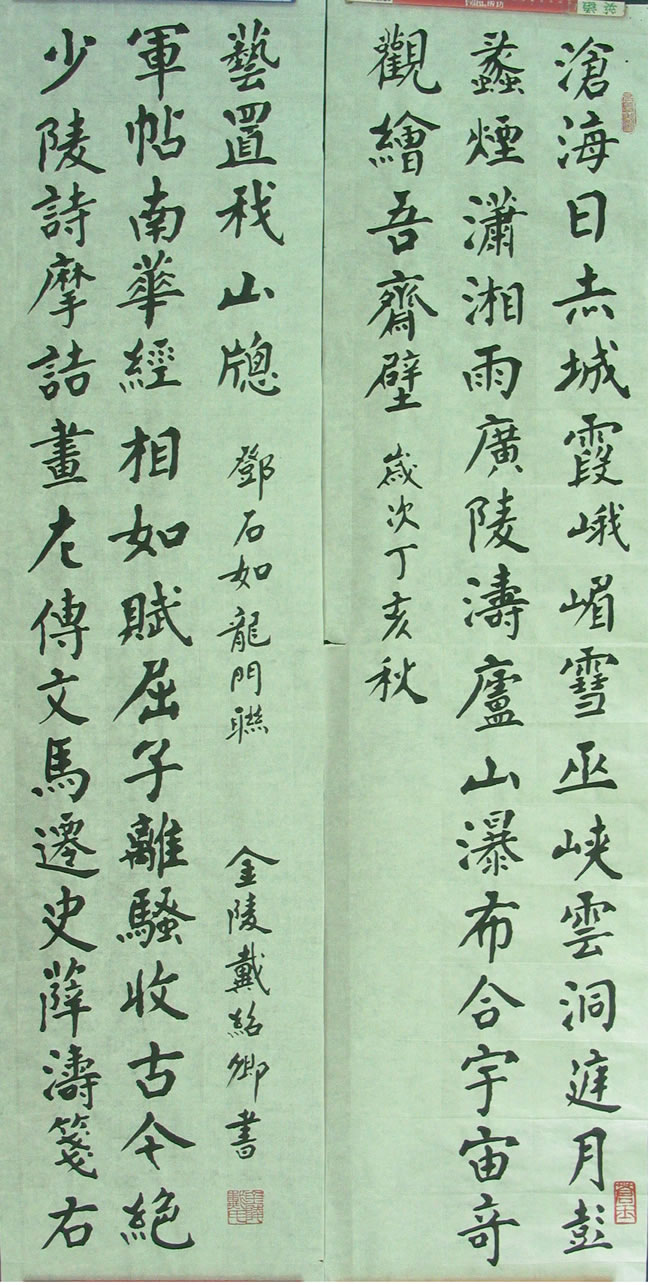 滄海日赤城霞峨嵋雪巫峡雲洞庭月彭
蠡煙瀟湘雨廣陵濤廬山瀑布合宇宙奇
觀繪吾齋壁 歲次丁亥秋
少陵詩摩詰畫左傳文馬遷史薛濤箋右
軍帖南華經相如賦屈子離騷收古今絕
藝置我山牕 鄧石如龍門聯 金陵戴紹卿書